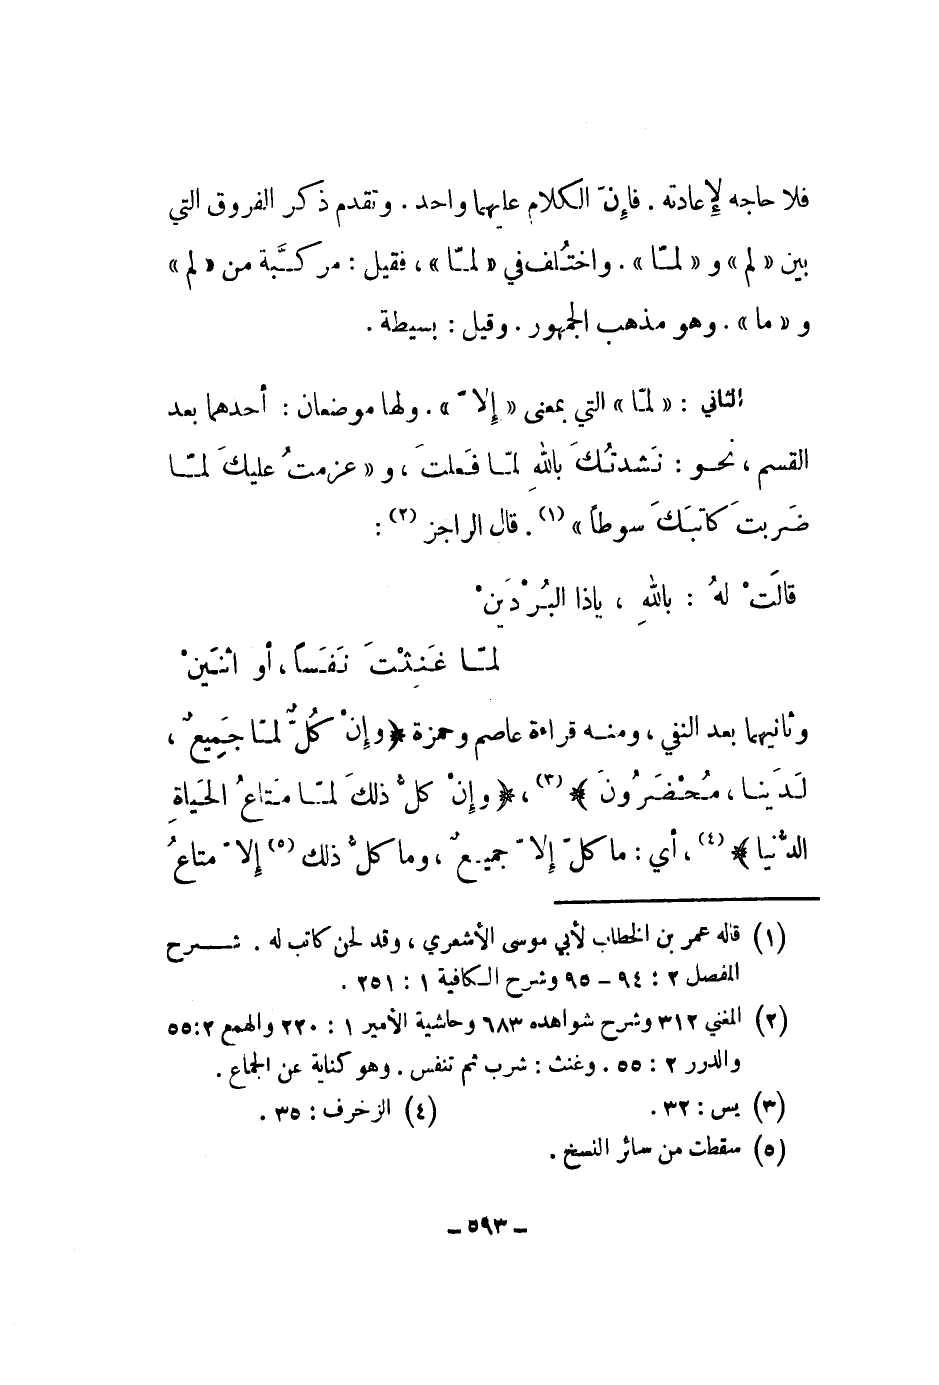 فلا حاجه لإعادته . فإنّ الكلام عليهما واحد . وتقدم ذكر الفروق التي
بين « لم » و « لمّا » . واختُلف في « لمّا » ، فقيل : مركَّبة من « لم »
و « ما » . وهو مذهب الجمهور . وقيل : بسيطة .
الثاني : « لمّا » التي بمعنى « إلاّ » . ولها موضعان : أحدهما بعد
القسم ، نحو : نَشدتُكَ باللهِ لمّا فَعلتَ ، و « عزمتُ عليكَ لمّا
ضَربتَ كاتبَكَ سوطاً » (١) . قال الراجز (٢) :
قالَتْ لهُ : باللهِ ، ياذا البُرْدَينْ
لمّا غَنِثْتَ نَفَساً ، أو اثنَينْ
وثانيهما بعد النفي ، ومنه قراءة عاصم وحمزة ﴿وإنْ كُلٌّ لمّا جَمِيعٌ ،
لَدَينا ، مُحْضَرُونَ﴾ (٣) ، ﴿وإنْ كلُّ ذلكَ لمّا مَتاعُ الحَياةِ
الدُّنيا﴾ (٤) ، أي : ما كلّ إلاّ جميعٌ ، وما كلُّ ذلك (٥) إلاّ متاعُ
(١) قاله عمر بن الخطاب لأبي موسى الأشعري ، وقد لحن كاتب له . شرح
المفصل ٢ : ٩٤ – ٩٥ وشرح الكافية ١ : ٢٥١ .
(٢) المغني ٣١٢ وشرح شواهده ٦٨٣ وحاشية الأمير ١ : ٢٢٠ والهمع ٢:٥٥
والدرر ٢ : ٥٥ . وغنث : شرب ثم تنفس . وهو كناية عن الجماع .
(٣) يس : ٣٢ . (٤) الزخرف : ٣٥ .
(٥) سقطت من سائر النسخ .
– ٥٩٣ –